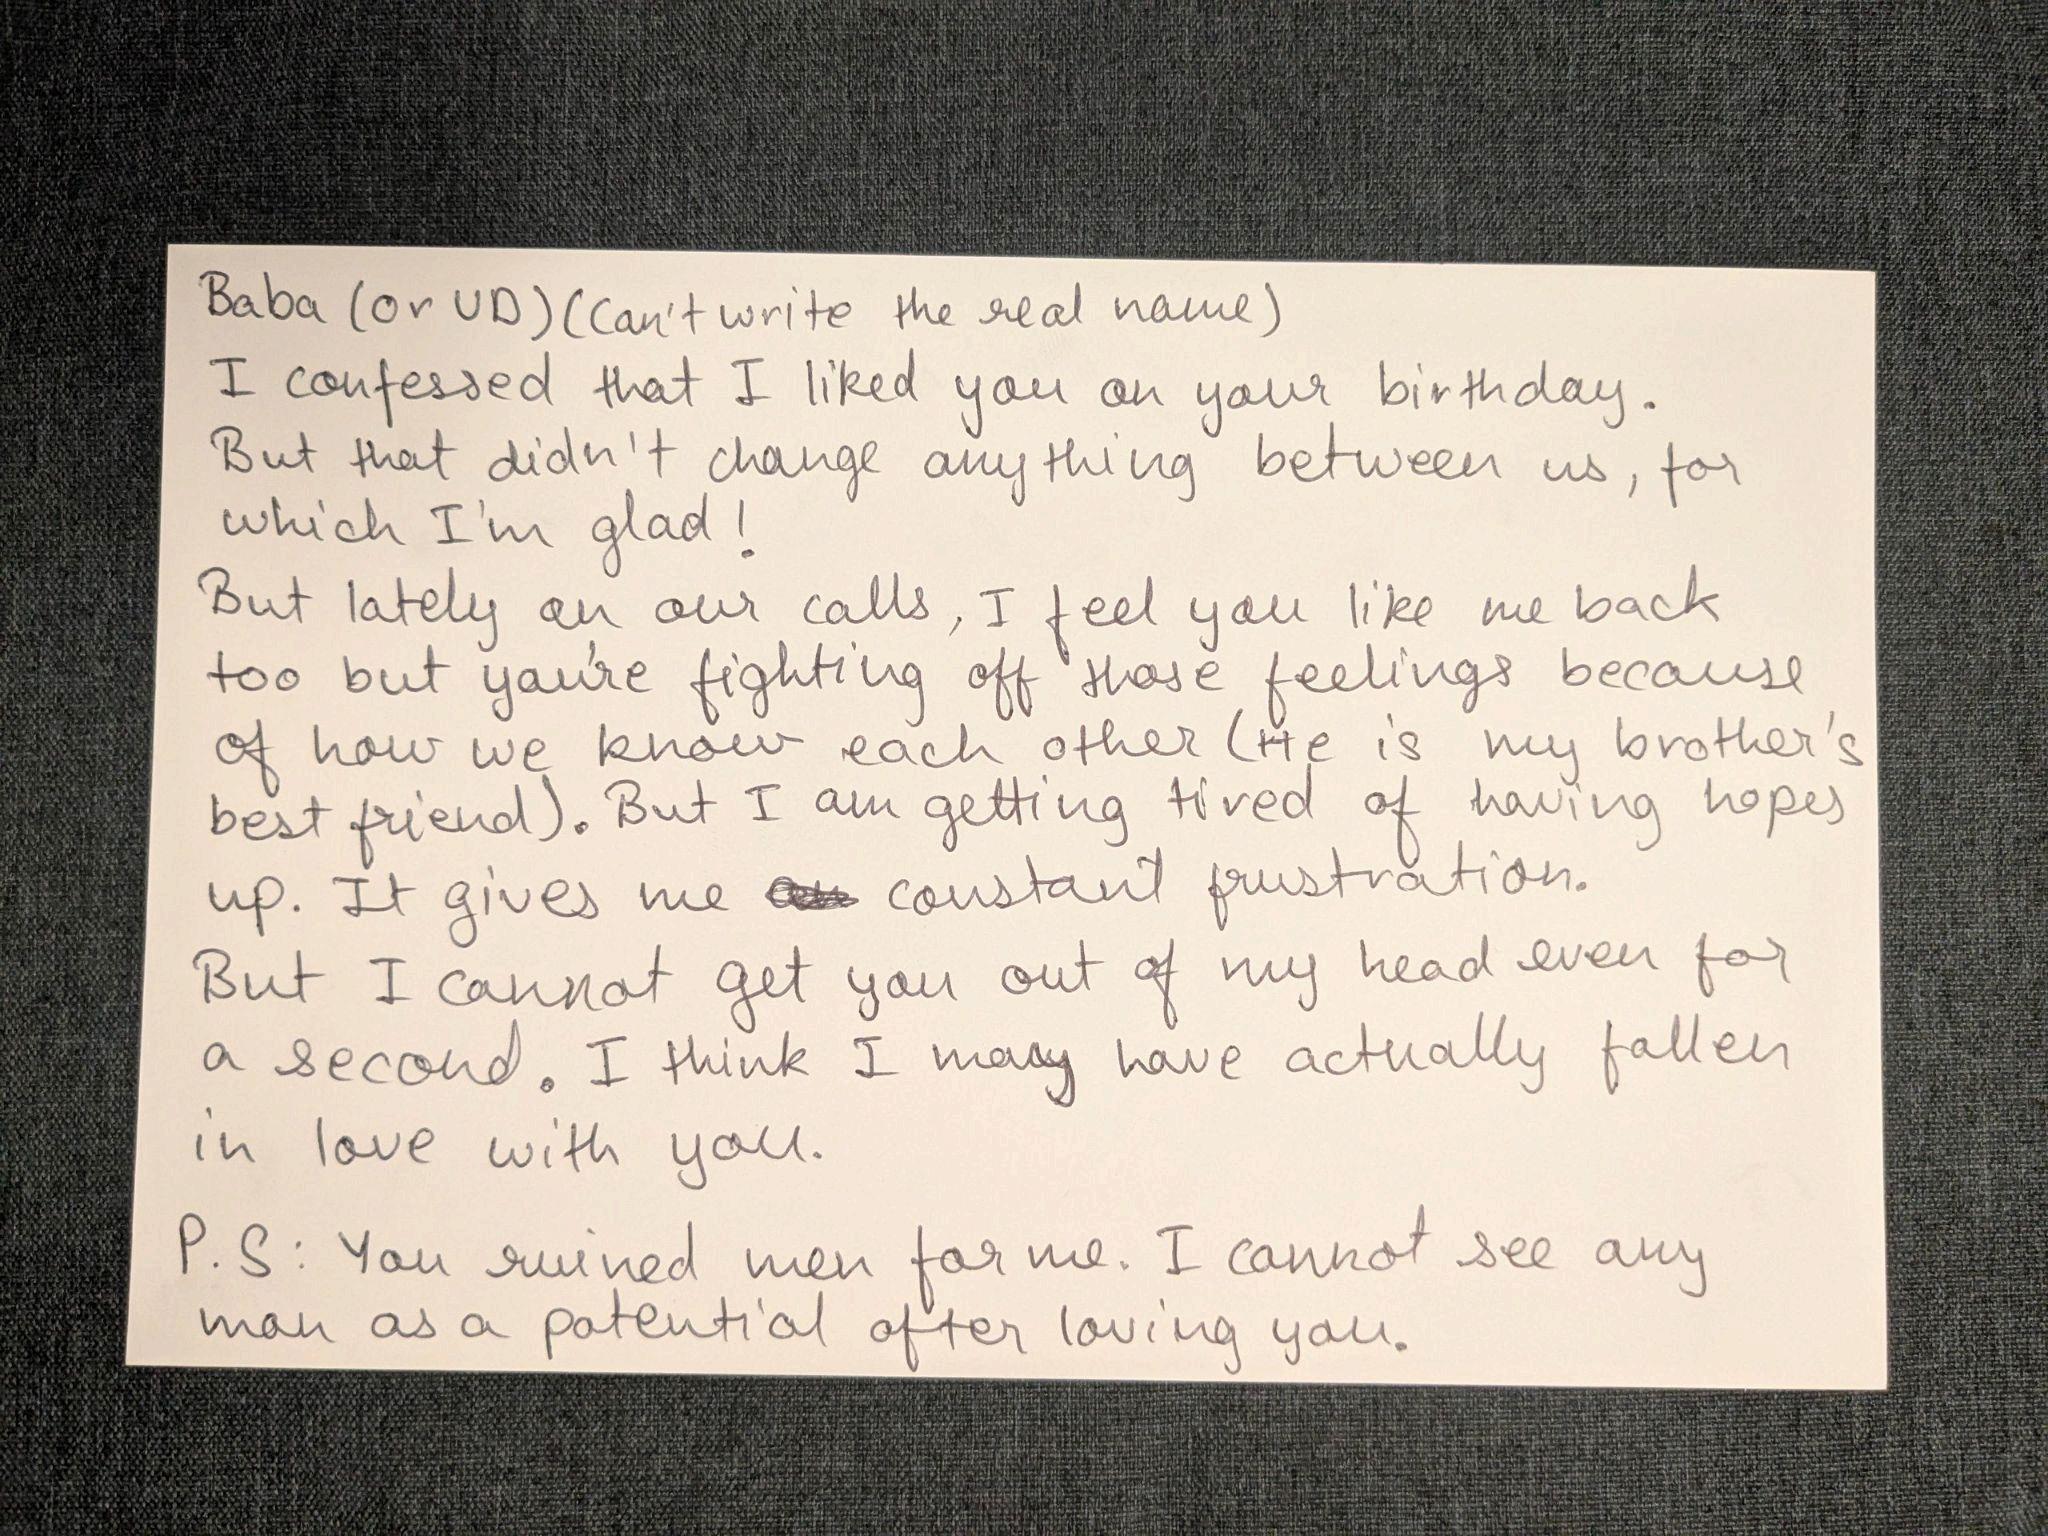 Baba (or UD) (Can't write the real name)
I confessed that I liked you on your birthday.
But that didn't change anything between us, for
which I'm glad!
But lately on our calls, I feel you like me back
too but you're fighting off those feelings because
of how we know each other (He is my brother's
best friend). But I am getting tired of having hopes
up. It gives me constant frustration.
But I cannot get you out of my head even for
a second. I think I may have actually fallen
in love with you.
P.S: You ruined men for me. I cannot see any
man as a potential after loving you.